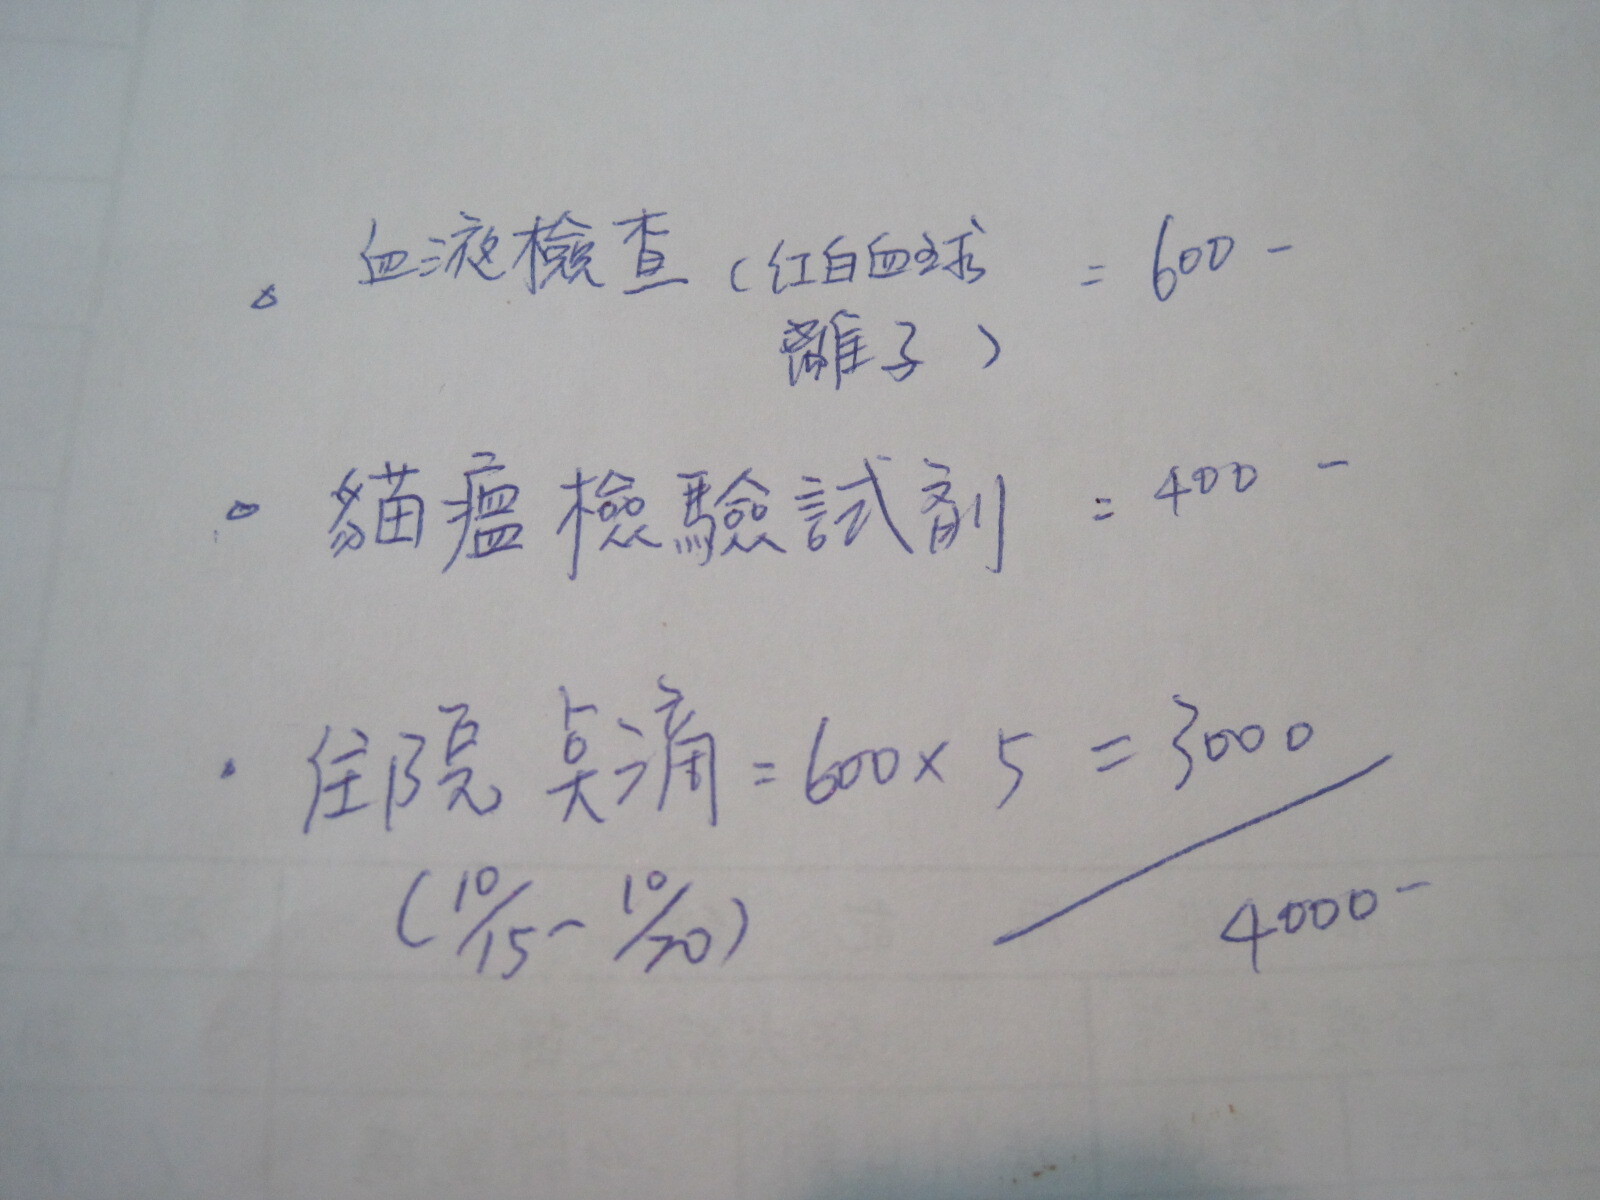 。血液檢查(紅白血球 = 600-
離子)
。貓瘟檢驗試劑 = 400-
. 住院 點滴 = 600 x 5 = 3000
(10/15 - 10/20)
4000-